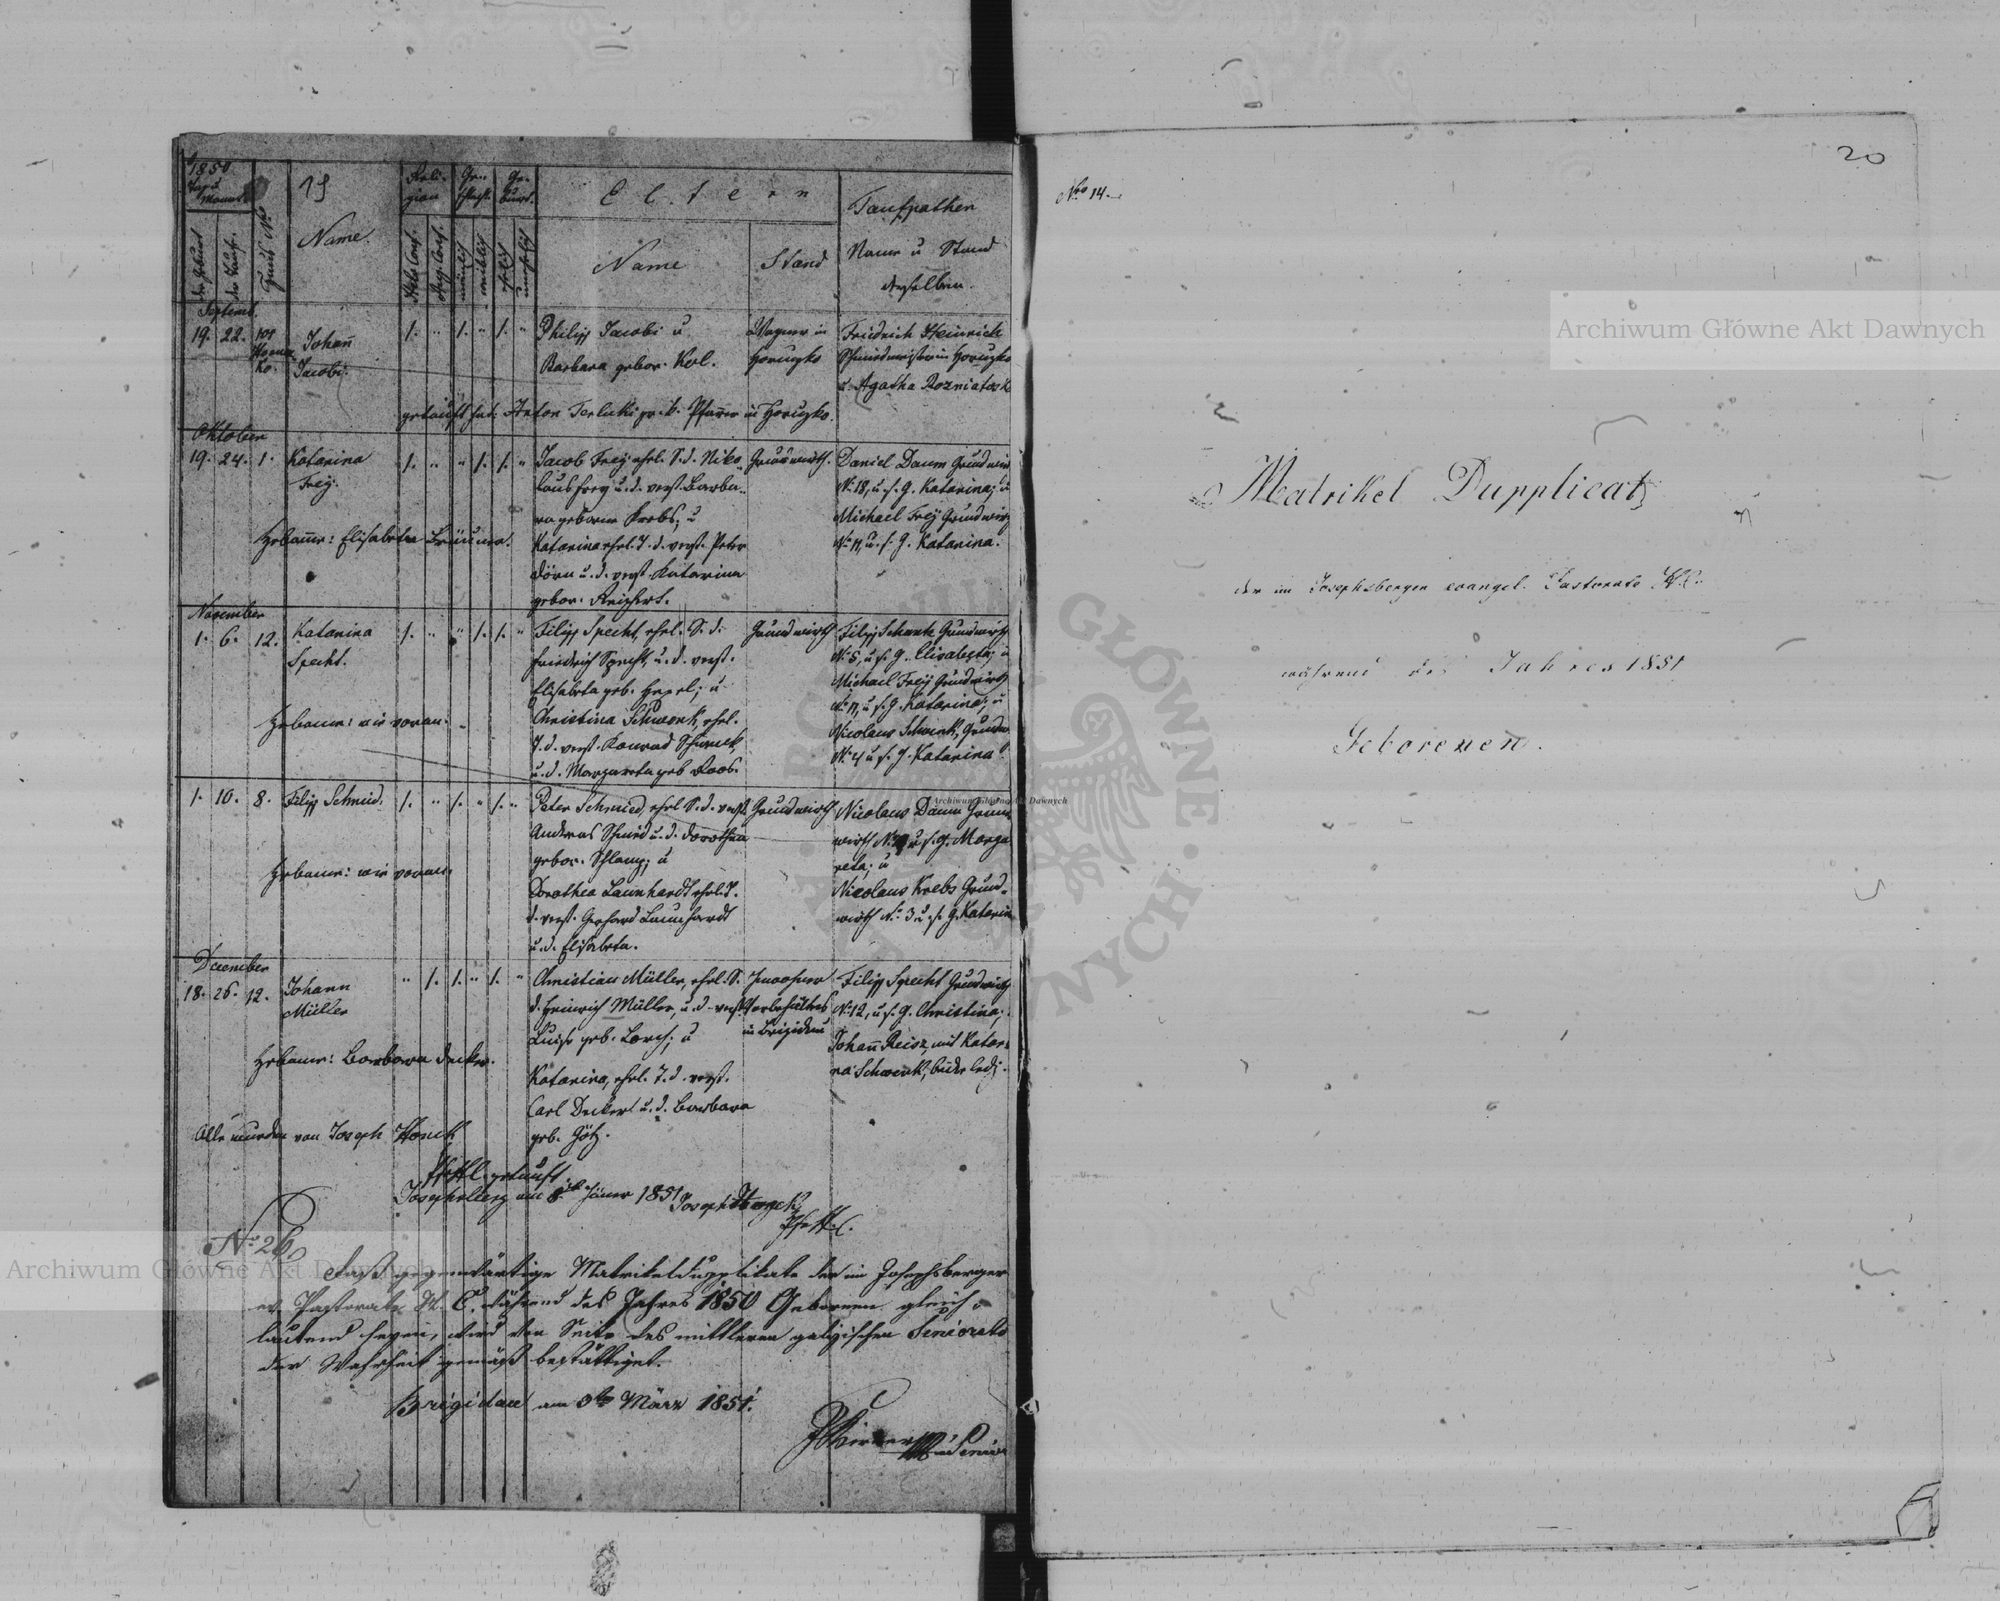 1850
19
Religion
Geschlecht
Geburt
Eltern
Taufpathen
Name
Name
Stand
Name u Stand
derselben.
der Geburt
der Taufe
Haus Nro
Helv. Conf.
Aug. Conf.
männlich
weiblich
ehelich
unehelich
Septemb.
19. 22.
Johann
Jacobi.
1. " 1. " 1. "
Philipp Jacobi u
Barbara gebor. Kol.
Wagner in
Horuzko
Friedrich Heinrich
Schmiedmeister in Horuzko
u. Agatha Rozniatosk
getauft hat: Anton Terlecki gr. k. Pfarrer in Horuzko.
Oktober
19. 24. 1.
Katarina
Frey.
1. " " 1. 1. "
Jacob Frey ehel. S. d. Niko-
laus Frey u. d. verst. Barba-
ra geborne Krebs; u
Katarina ehel. T. d. verst. Peter
Dörn u. d. verst. Katarina
gebor. Reichert.
Grundwirth.
Daniel Daum Grundwirth
No 18, u. s. G. Katarina; u
Michael Frey Grundwirth
No 11, u. s. G. Katarina.
Hebamme: Elisabeta
November
1. 6. 12.
Katarina
Specht.
1. " " 1. 1. "
Filipp Specht, ehel. S. d.
Friedrich Specht, u. d. verst.
Elisabeta geb. ; u
Christina Schwenk, ehel.
T. d. verst. Konrad Schwenk,
u. d. Margareta geb Roos.
Grundwirth
Filipp Schwenk Grundwirth
No 5, u s. G. Elisabeta; u
Michael Frey Grundwirth
No 11, u s. G. Katarina; u
Nicolaus Schwenk, Grundw.
No 4 u s. G. Katarina
Hebamme: wie voran.
1. 10. 8.
Filipp Schmid.
1. " 1. " 1. "
Peter Schmied, ehel S. d. verst
Andreas Schmid u. d. Dorothea
gebor. Schlamp; u
Dorothea Launhardt ehel. T.
d. verst. Gerhard Launhardt
u. d. Elisabeta.
Grundwirth
Nicolaus Daum Grund-
wirth No u s. G. Marga
reta; u
Nicolaus Krebs Grund-
wirth No 3 u. s. G. Katarina
Hebamme: wie voran.
December
18. 26. 12.
Johann
Müller
" 1. 1. " 1. "
Christian Müller, ehel. S.
d. Heinrich Müller, u. d. verst
Luise geb. Lorch; u
Katarina, ehel. T. d. verst.
Carl Decker u. d. Barbara
geb. Götz.
Inwohner
in Brigidau
Filipp Specht Grundwirth
No 12, u s. G. Christina;
Johann Reisz, mit Katari-
na Schwenk, beide ledig.
Hebamme: Barbara Decker.
Alle wurden von Joseph Honck
getauft
Josephsberg am 8ten Jäner 1851
Joseph Honck
No 26
Daß gegenwärtige Matrikelduplikate der im Josephsberger
ev. Pastorate H. C. während des Jahres 1850 Gebornen gleich-
lautend seyen, wird von Seite des mittleren galizischen Seniorats
der Wahrheit gemäß bestättiget.
Brigidau am März 1851.
Senior
20
Nro 14.
Matrikel Dupplicat
der im Josephsberger evangel. Pastorate H. C.
während des Jahres 1851
Geborenen.
Archiwum Główne Akt Dawnych
Archiwum Główne Akt Dawnych
Archiwum Główne Akt Dawnych